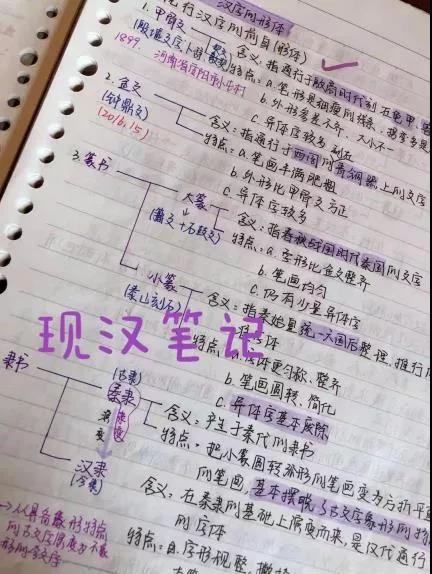 汉字的形体
现行汉字的前身(形体)
1. 甲骨文
(殷墟文字、卜辞、契文)
含义:指通行于殷商时代刻在龟甲、兽
1899. 河南省安阳市小屯村
特点:a.笔形是细瘦的线条,拐弯多是
b.外形参差不齐、大小不一
c.异体字较多
2. 金文
(钟鼎文)
(2016.15)
含义:指通行于西周的青铜器上的文字
特点:a.笔画丰满肥粗
b.外形比甲骨文方正
c.异体字较多
3. 篆书
大篆
(籀文+石鼓文)
含义:指春秋战国时代秦国的文字
特点:a.字形比金文整齐
b.笔画均匀
c.仍有少量异体字
小篆
(泰山刻石)
含义:指秦始皇统一六国后整理、推行的
标准字体
特点:a.字体更匀称、整齐
b.笔画圆转、简化
c.异体字基本废除
现汉笔记
隶书
(古隶)
秦隶
含义:产生于秦代的隶书
特点:把小篆圆转弧形的笔画变为方折平直
的笔画,基本摆脱了古文字象形的特
隶变
汉隶
(今隶)
含义:在秦隶的基础上演变而来,是汉代通行
的字体
特点:a.字形规整,撇捺
→从具备象形特点
的古文字演变为不象
形的今文字